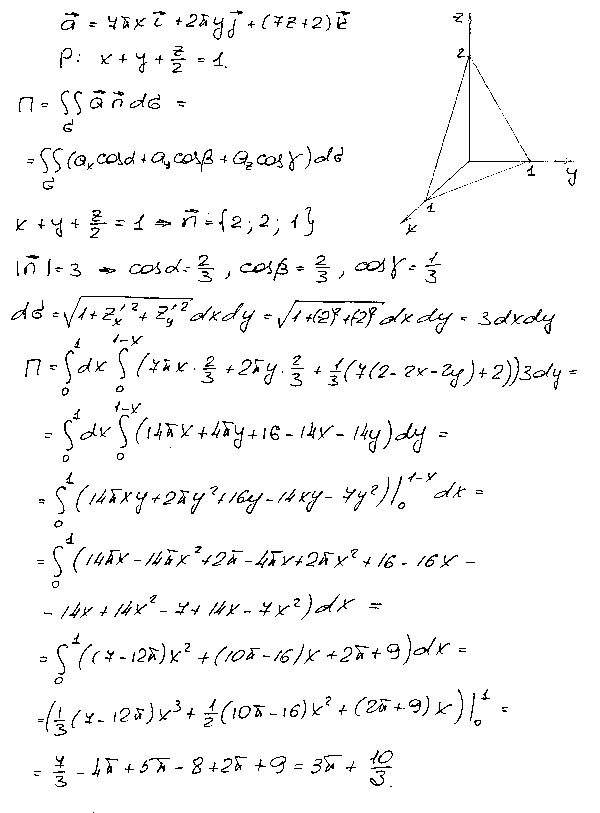 a⃗ = 7πx i⃗ + 2πy j⃗ + (7z+2) k⃗
P: x + y + z/2 = 1.
П = ∬_σ a⃗ n⃗ dσ =
= ∬_σ (a_x cosα + a_y cosβ + a_z cosγ) dσ
x + y + z/2 = 1 ⇒ n⃗ = {2; 2; 1}
|n⃗| = 3 ⇒ cosα = 2/3, cosβ = 2/3, cosγ = 1/3
dσ = √(1 + z'_x² + z'_y²) dxdy = √(1 + (2)² + (2)²) dxdy = 3dxdy
П = ∫₀¹ dx ∫₀^{1-x} (7πx · 2/3 + 2πy · 2/3 + 1/3 (7(2 - 2x - 2y) + 2)) 3dy =
= ∫₀¹ dx ∫₀^{1-x} (14πx + 4πy + 16 - 14x - 14y) dy =
= ∫₀¹ (14πxy + 2πy² + 16y - 14xy - 7y²) |₀^{1-x} dx =
= ∫₀¹ (14πx - 14πx² + 2π - 4πx + 2πx² + 16 - 16x -
- 14x + 14x² - 7 + 14x - 7x²) dx =
= ∫₀¹ ((7 - 12π)x² + (10π - 16)x + 2π + 9) dx =
= (1/3 (7 - 12π)x³ + 1/2 (10π - 16)x² + (2π + 9)x) |₀¹ =
= 7/3 - 4π + 5π - 8 + 2π + 9 = 3π + 10/3.
z
2
1
y
1
x